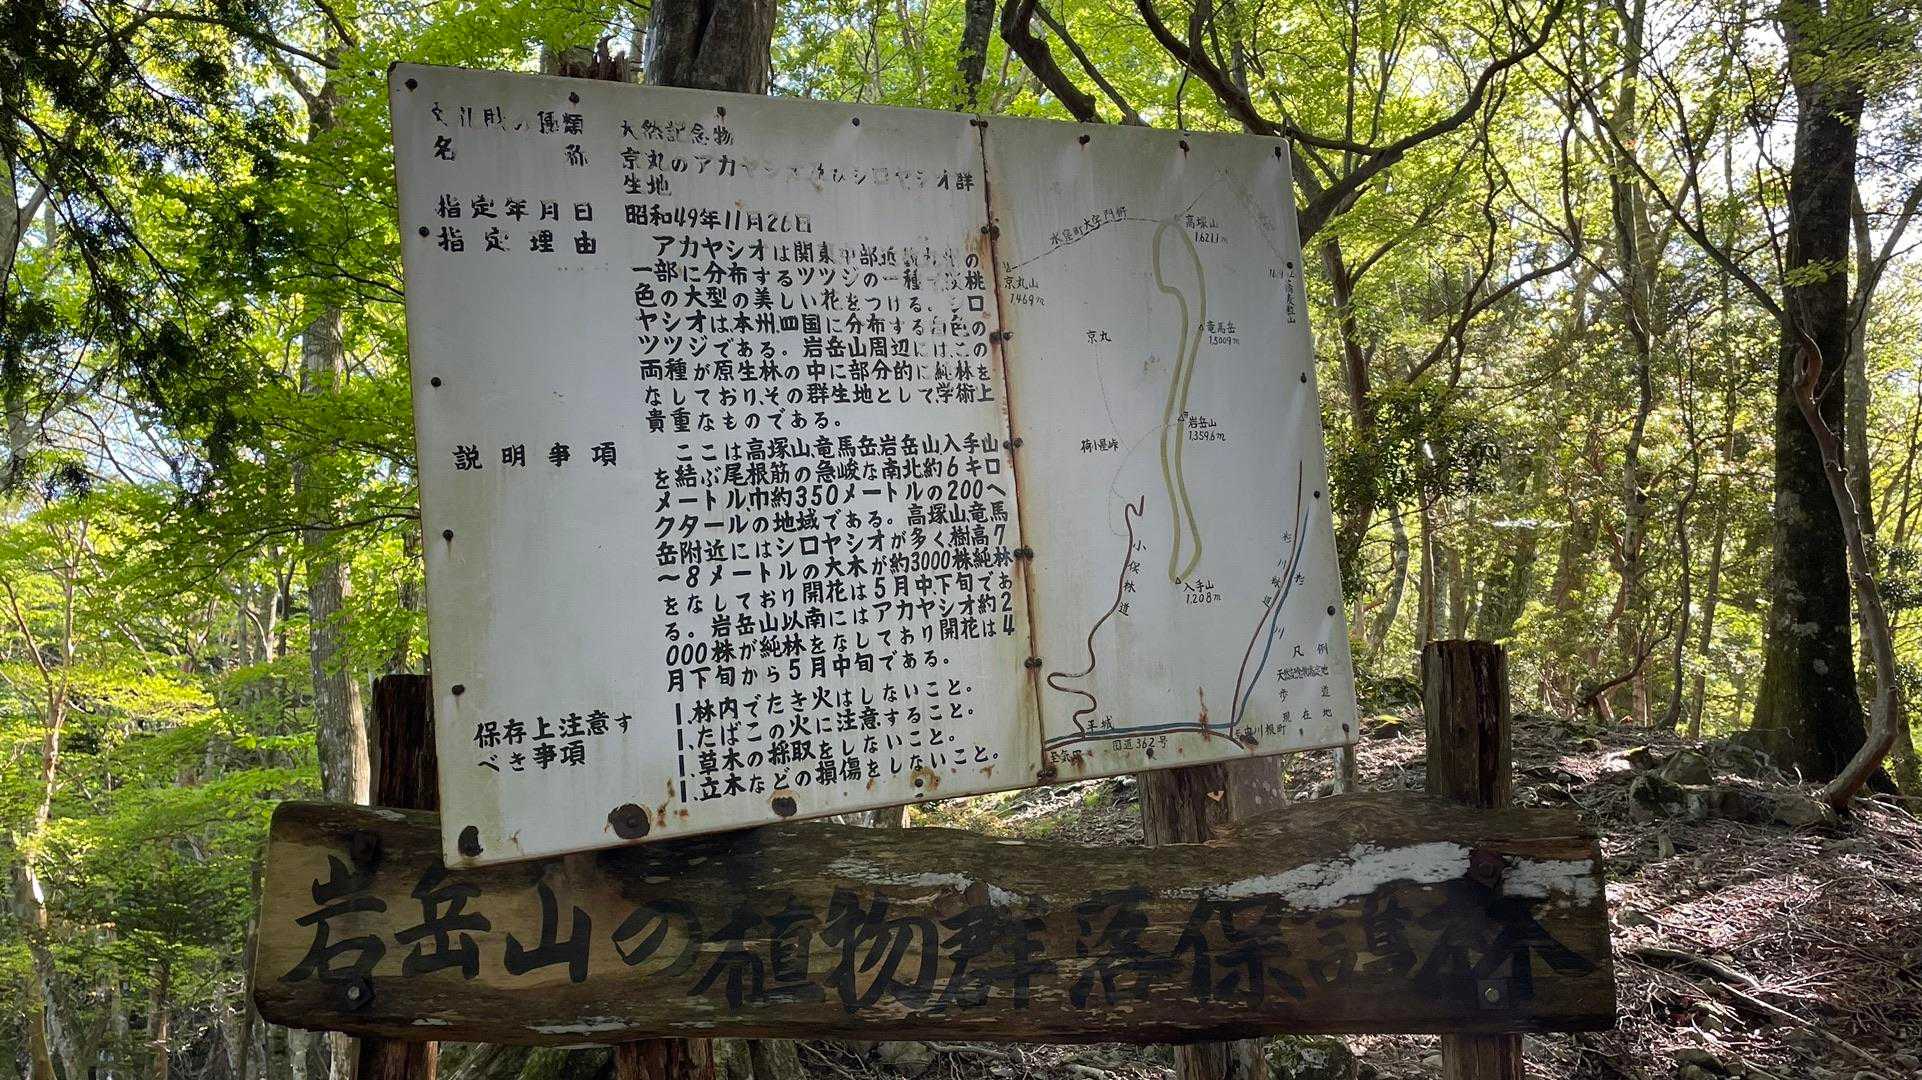 種類 天然記念物
名称 京丸のアカヤシオ及びシロヤシオ群
生地
指定年月日 昭和49年11月26日
指定理由 アカヤシオは関東中部近の
一部に分布するツツジの一種で淡桃
色の大型の美しい花をつける。シロ
ヤシオは本州四国に分布する白色の
ツツジである。岩岳山周辺にはこの
両種が原生林の中に部分的に純林を
なしており、その群生地として学術上
貴重なものである。
説明事項 ここは高塚山、竜馬岳、岩岳山、入手山
を結ぶ尾根筋の急峻な南北約6キロ
メートル、巾約350メートルの200ヘ
クタールの地域である。高塚山、竜馬
岳附近にはシロヤシオが多く樹高7
〜8メートルの大木が約3000株純林
をなしており開花は5月中、下旬であ
る。岩岳山以南にはアカヤシオ約2
000株が純林をなしており開花は4
月下旬から5月中旬である。
保存上注意す
べき事項
1.林内でたき火はしないこと。
1.たばこの火に注意すること。
1.草木の採取をしないこと。
1.立木などの損傷をしないこと。
高塚山
1,621.1m
京丸山
1,469m
竜馬岳
1,500.9m
京丸
岩岳山
1,359.6m
荷小屋峠
小俣林道
入手山
1,208m
杉川林道
杉川
凡例
天然記念物指定地
歩道
現在地
平城
国道362号
至気田
岩岳山の植物群落保護林